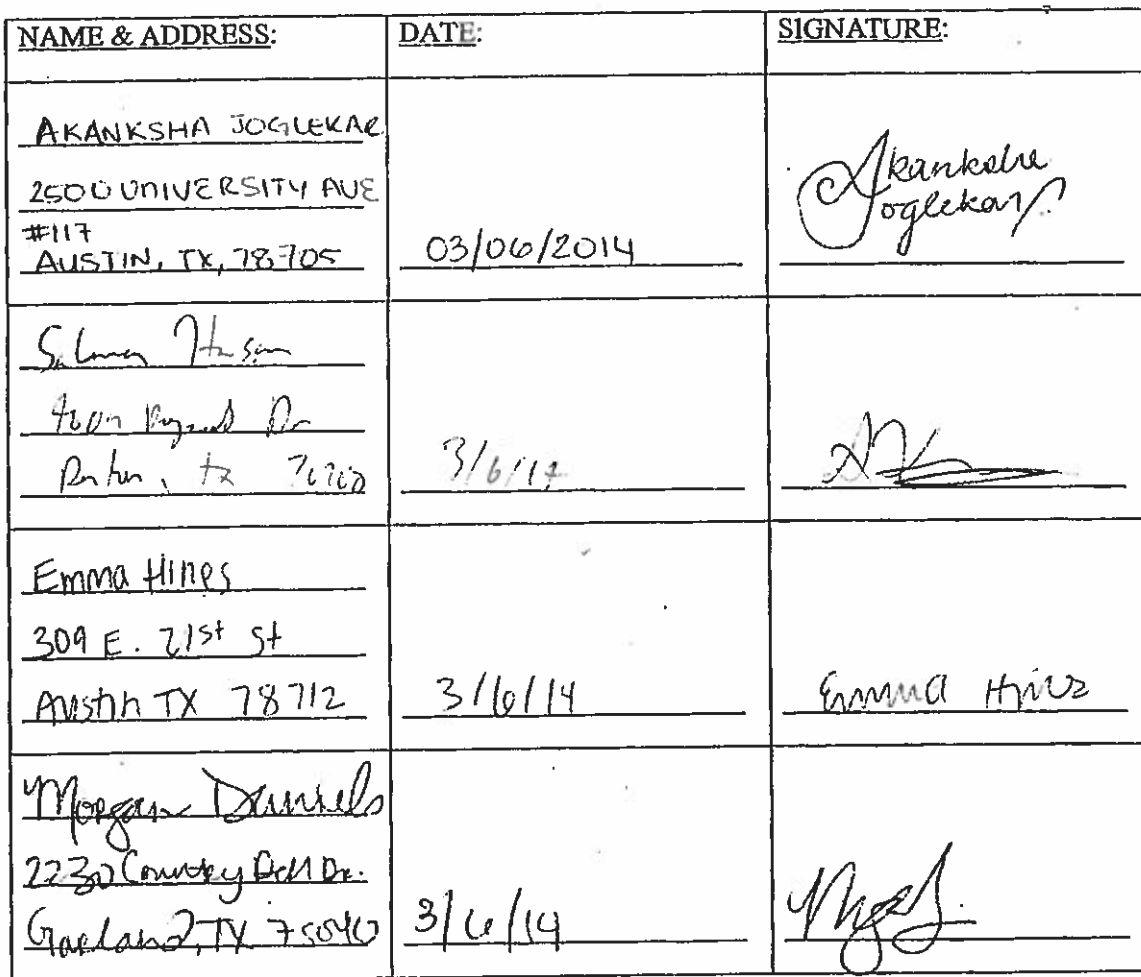 NAME & ADDRESS: DATE: SIGNATURE:
AKANKSHA JOGLEKAR
2500 UNIVERSITY AVE
#117
AUSTIN, TX, 78705 03/06/2014 Akanksha Joglekar
Dr
tx 3/6/14
Emma Hines
309 E. 21st St
Austin TX 78712 3/6/14 Emma Hines
Morgan Daniels
2230 Country Dell Dr.
Garland, TX 75040 3/6/14